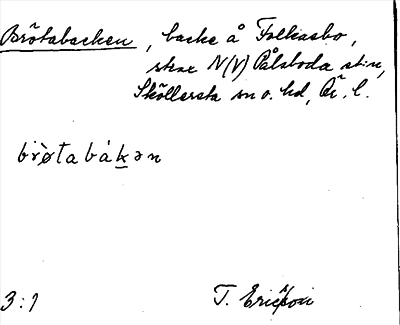 Brötabacken, backe å Folkasbo,
strax N(V) Pålsboda st:n,
Sköllersta sn o. hd, Ör. l.
brø̀tabákən
3:1 T. Ericsson